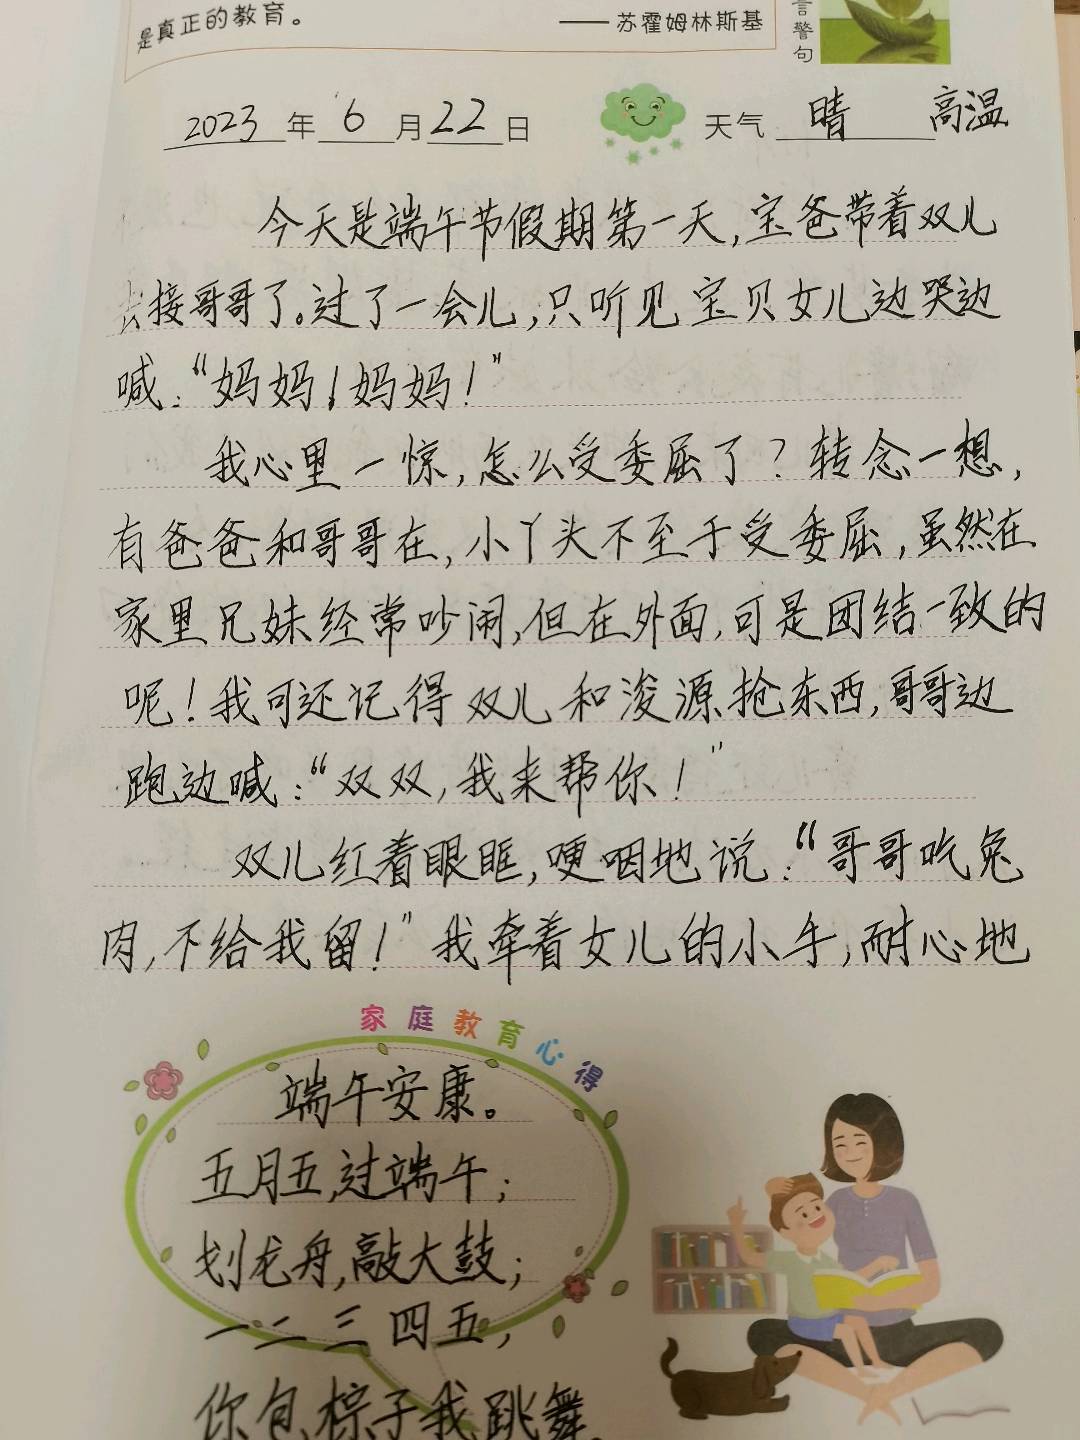 是真正的教育。
——苏霍姆林斯基
言警句
2023年6月22日 天气 晴 高温
今天是端午节假期第一天,宝爸带着双儿
去接哥哥了。过了一会儿,只听见宝贝女儿边哭边
喊:“妈妈!妈妈!”
我心里一惊,怎么受委屈了?转念一想,
有爸爸和哥哥在,小丫头不至于受委屈,虽然在
家里兄妹经常吵闹,但在外面,可是团结一致的
呢!我可还记得双儿和浚源抢东西,哥哥边
跑边喊:“双双,我来帮你!”
双儿红着眼眶,哽咽地说:“哥哥吃兔
肉,不给我留!”我牵着女儿的小手,耐心地
家庭教育心得
端午安康。
五月五,过端午;
划龙舟,敲大鼓;
一二三四五,
你包粽子我跳舞。